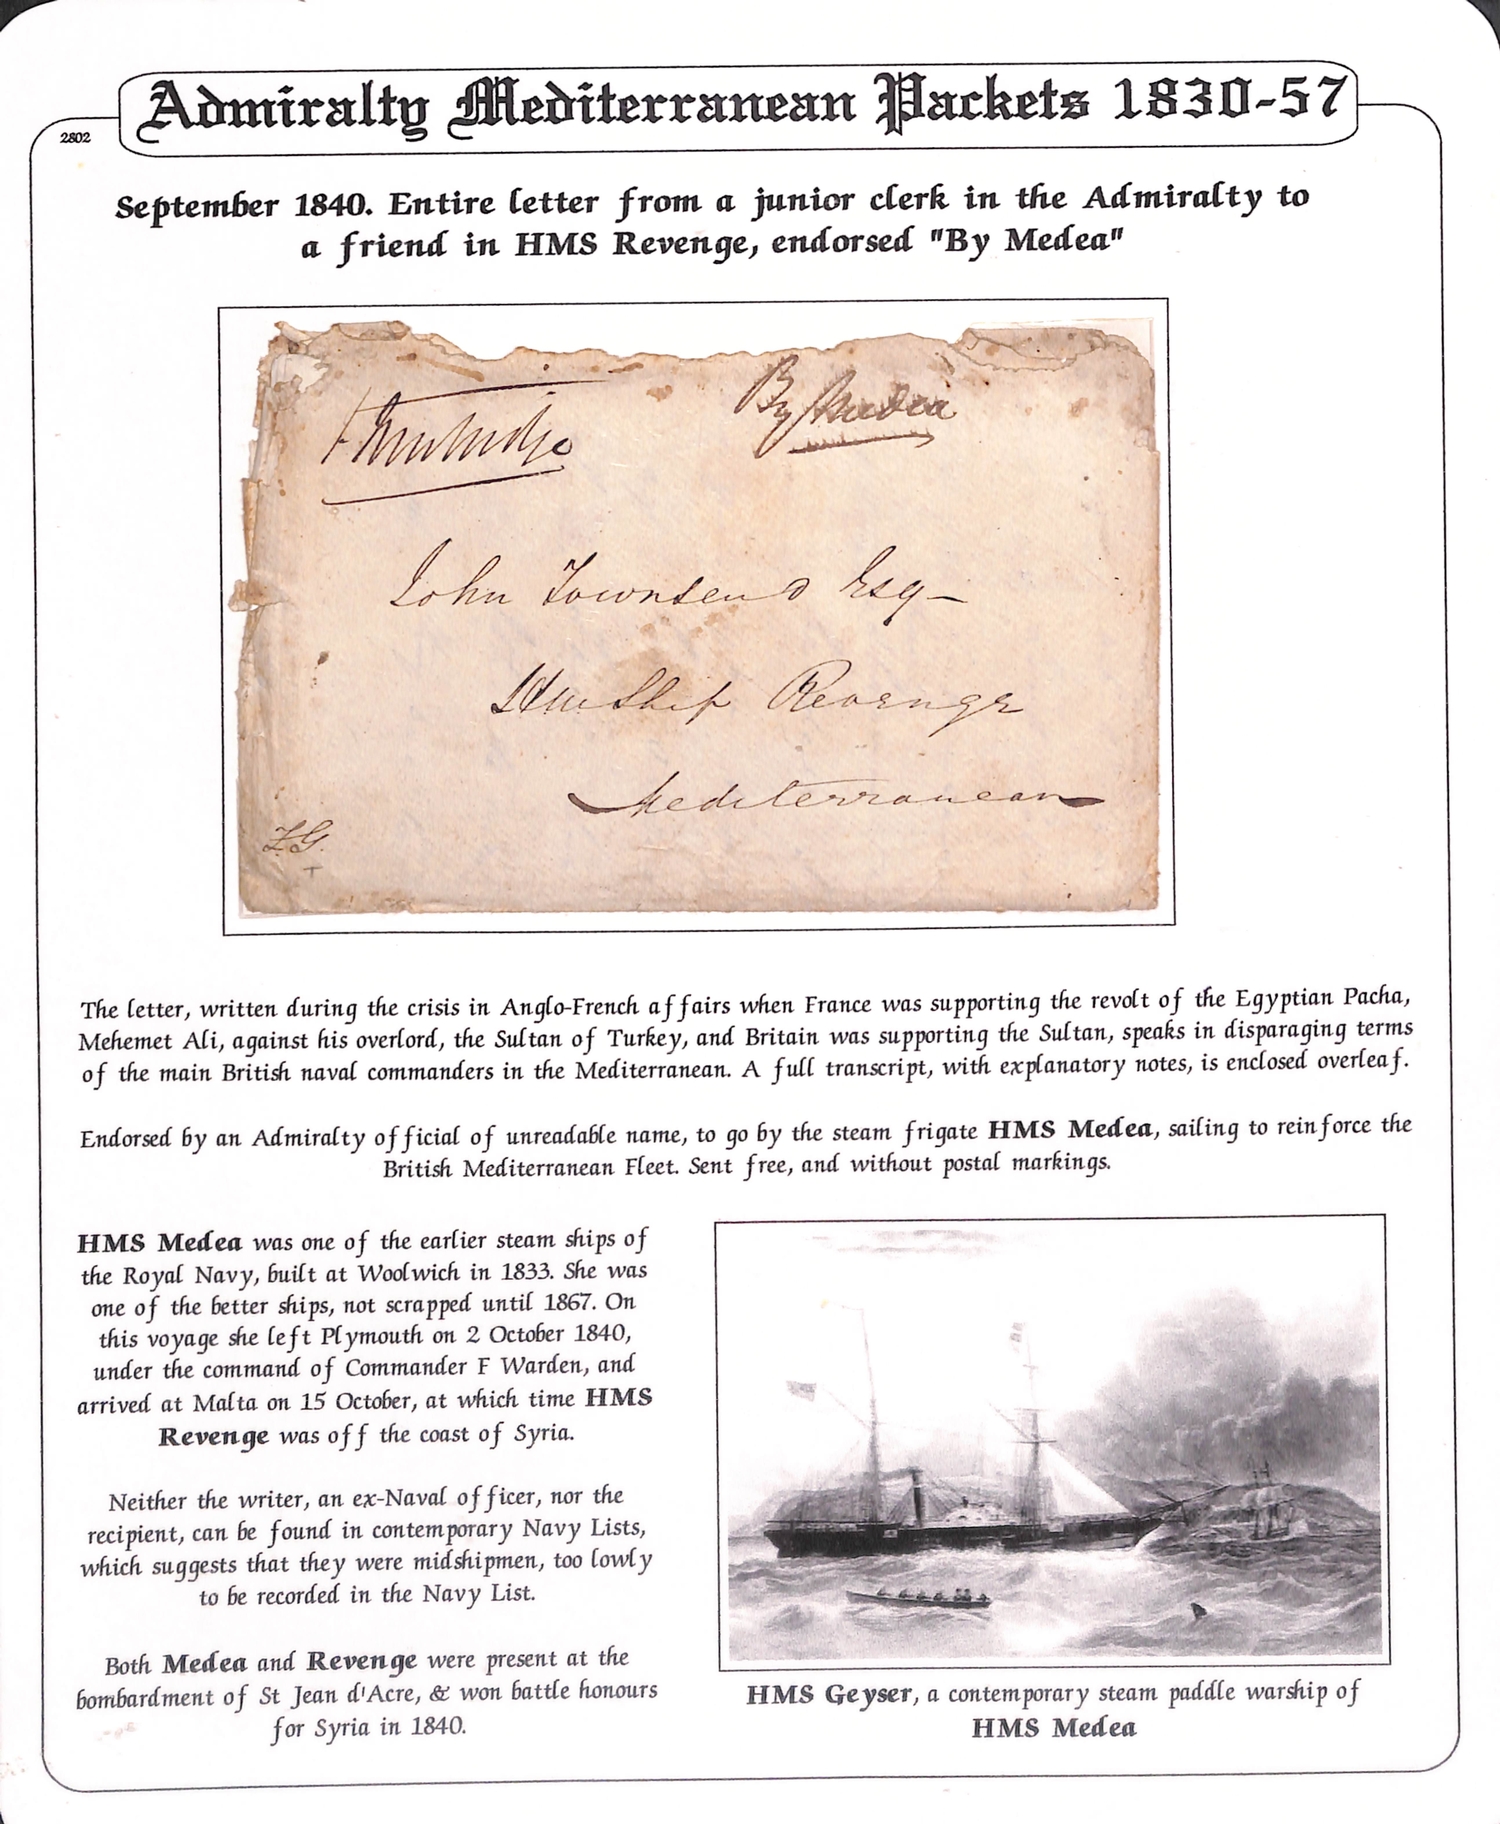 Admiralty Mediterranean Packets 1830-57
2802
September 1840. Entire letter from a junior clerk in the Admiralty to
a friend in HMS Revenge, endorsed "By Medea"
By Medea
John Townsend Esq—
HM Ship Revenge
Mediterranean
The letter, written during the crisis in Anglo-French affairs when France was supporting the revolt of the Egyptian Pacha,
Mehemet Ali, against his overlord, the Sultan of Turkey, and Britain was supporting the Sultan, speaks in disparaging terms
of the main British naval commanders in the Mediterranean. A full transcript, with explanatory notes, is enclosed overleaf.
Endorsed by an Admiralty official of unreadable name, to go by the steam frigate HMS Medea, sailing to reinforce the
British Mediterranean Fleet. Sent free, and without postal markings.
HMS Medea was one of the earlier steam ships of
the Royal Navy, built at Woolwich in 1833. She was
one of the better ships, not scrapped until 1867. On
this voyage she left Plymouth on 2 October 1840,
under the command of Commander F Warden, and
arrived at Malta on 15 October, at which time HMS
Revenge was off the coast of Syria.
Neither the writer, an ex-Naval officer, nor the
recipient, can be found in contemporary Navy Lists,
which suggests that they were midshipmen, too lowly
to be recorded in the Navy List.
Both Medea and Revenge were present at the
bombardment of St Jean d'Acre, & won battle honours
for Syria in 1840.
HMS Geyser, a contemporary steam paddle warship of
HMS Medea